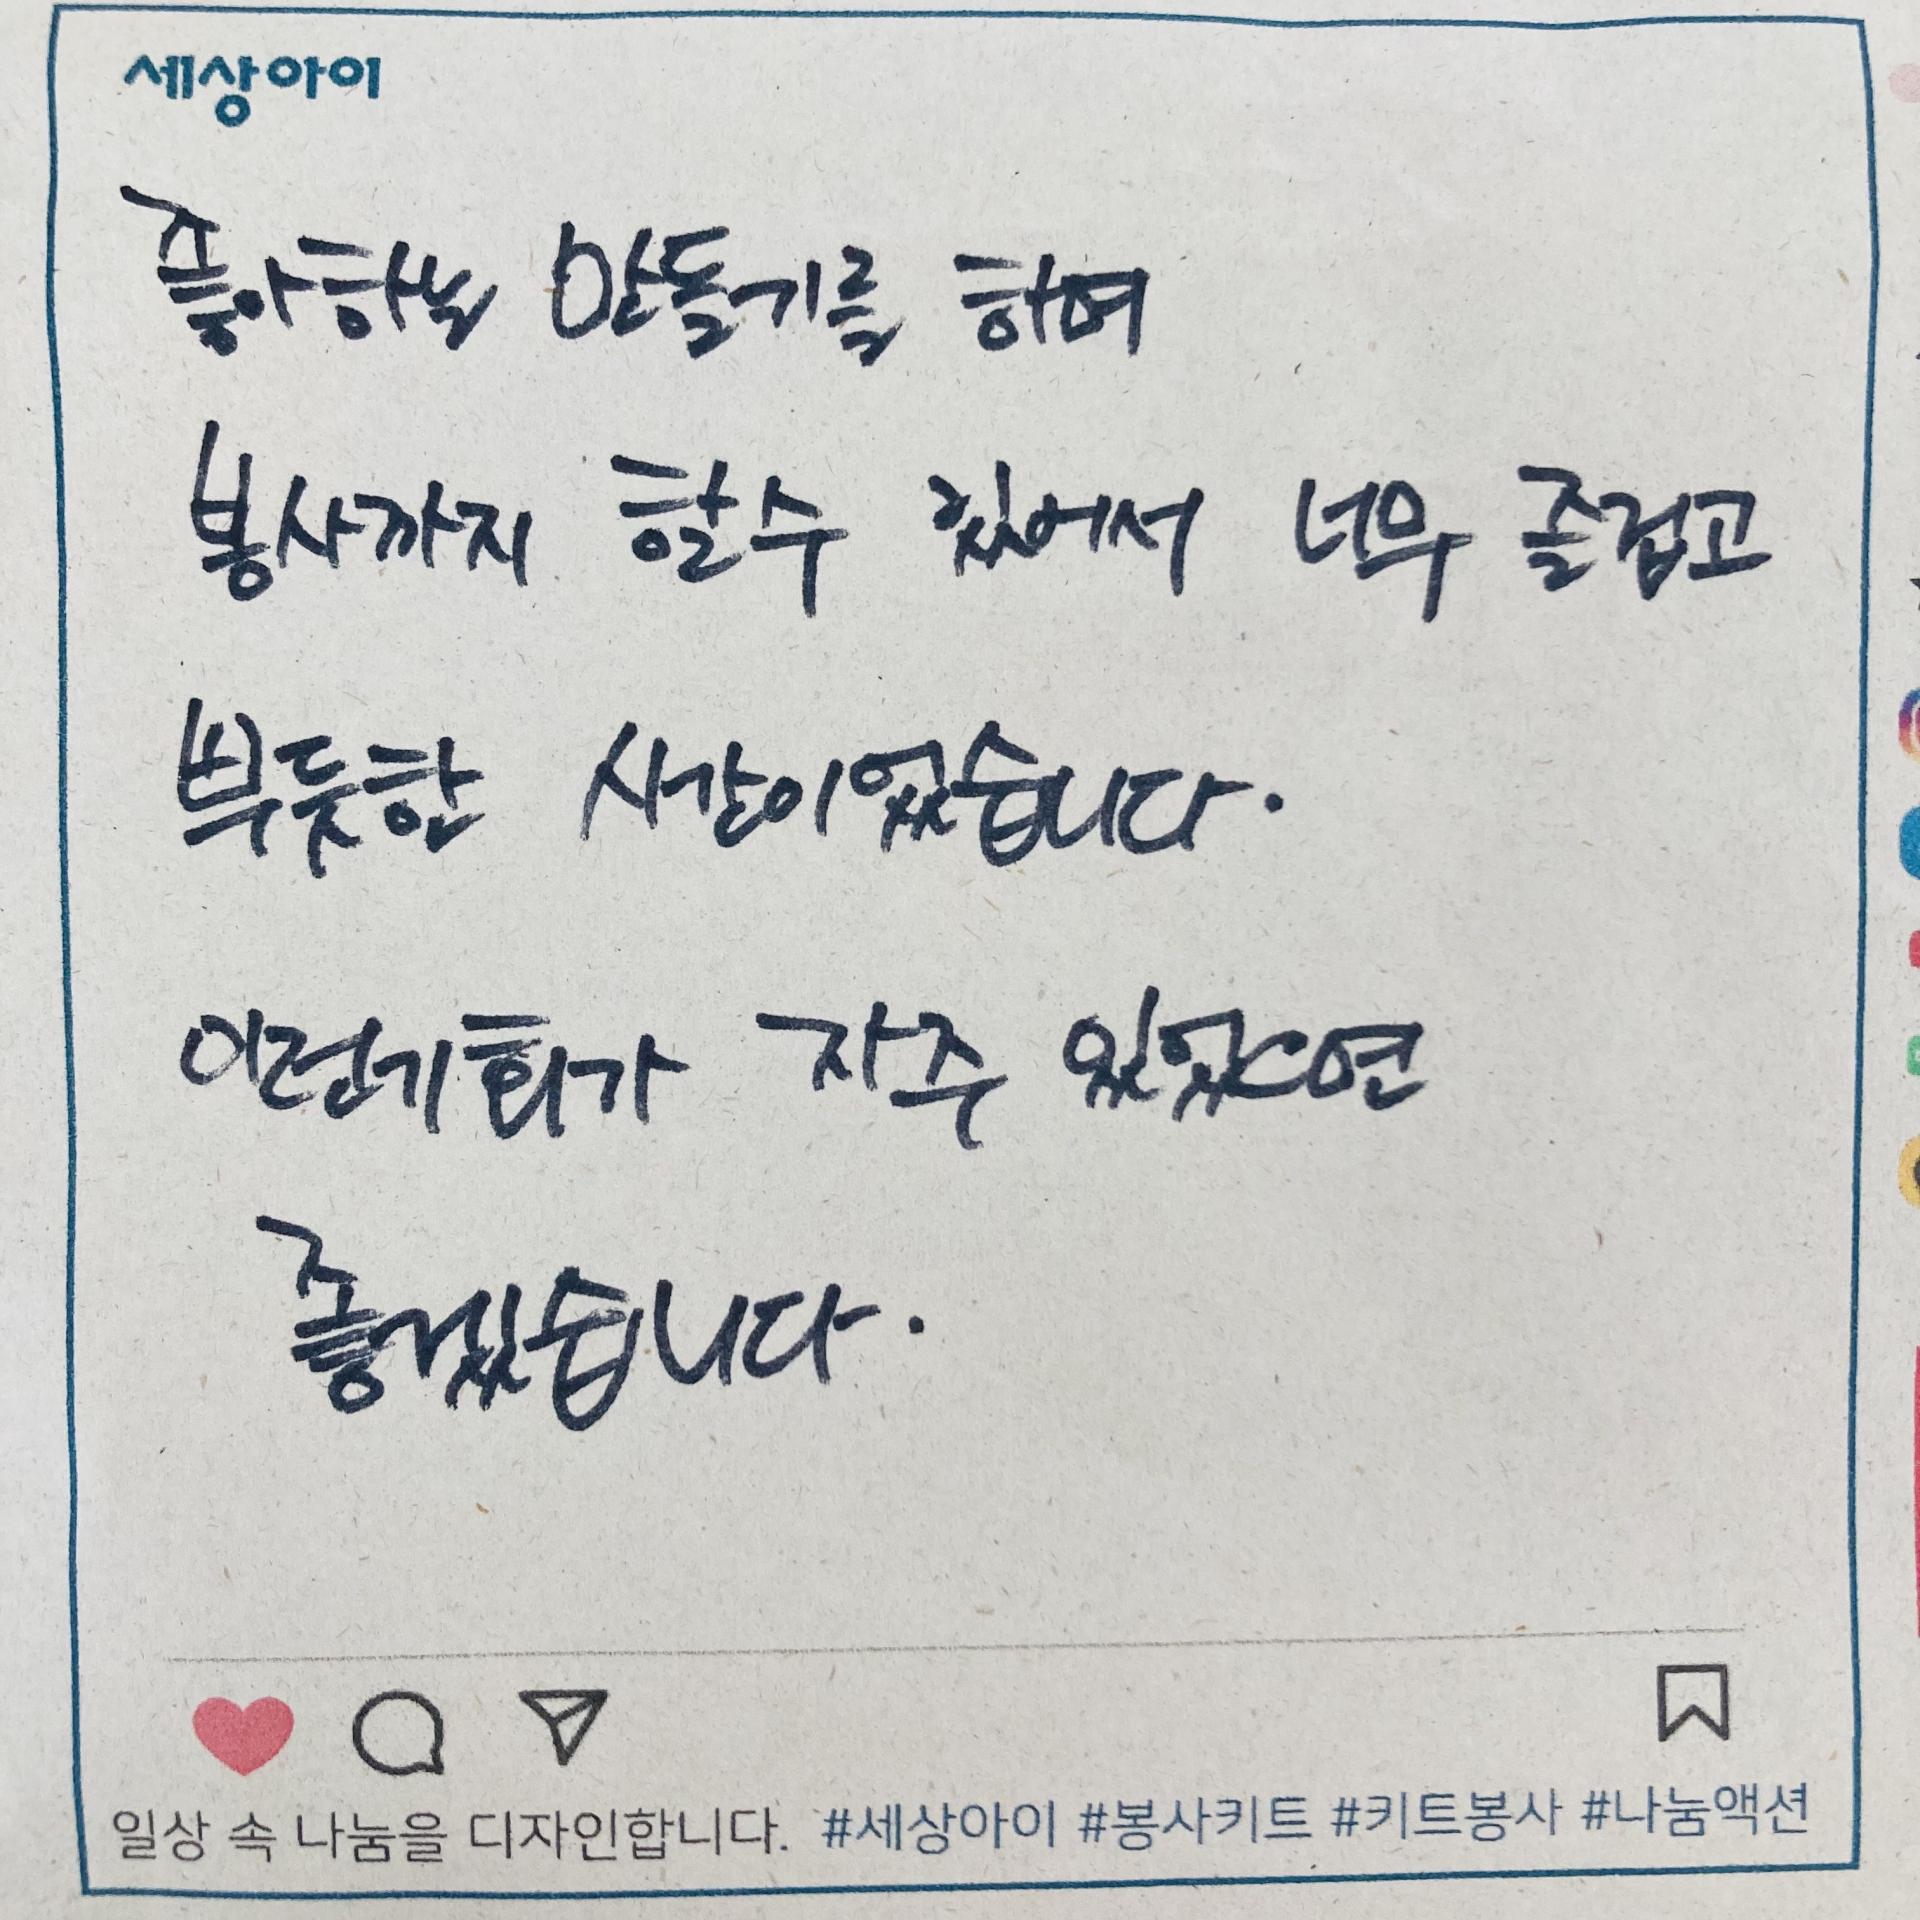 세상아이
좋아하는 만들기를 하며
봉사까지 할수 있어서 너무 즐겁고
뿌듯한 시간이었습니다.
이런기회가 자주 있었으면
좋겠습니다.
일상 속 나눔을 디자인합니다. #세상아이 #봉사키트 #키트봉사 #나눔액션